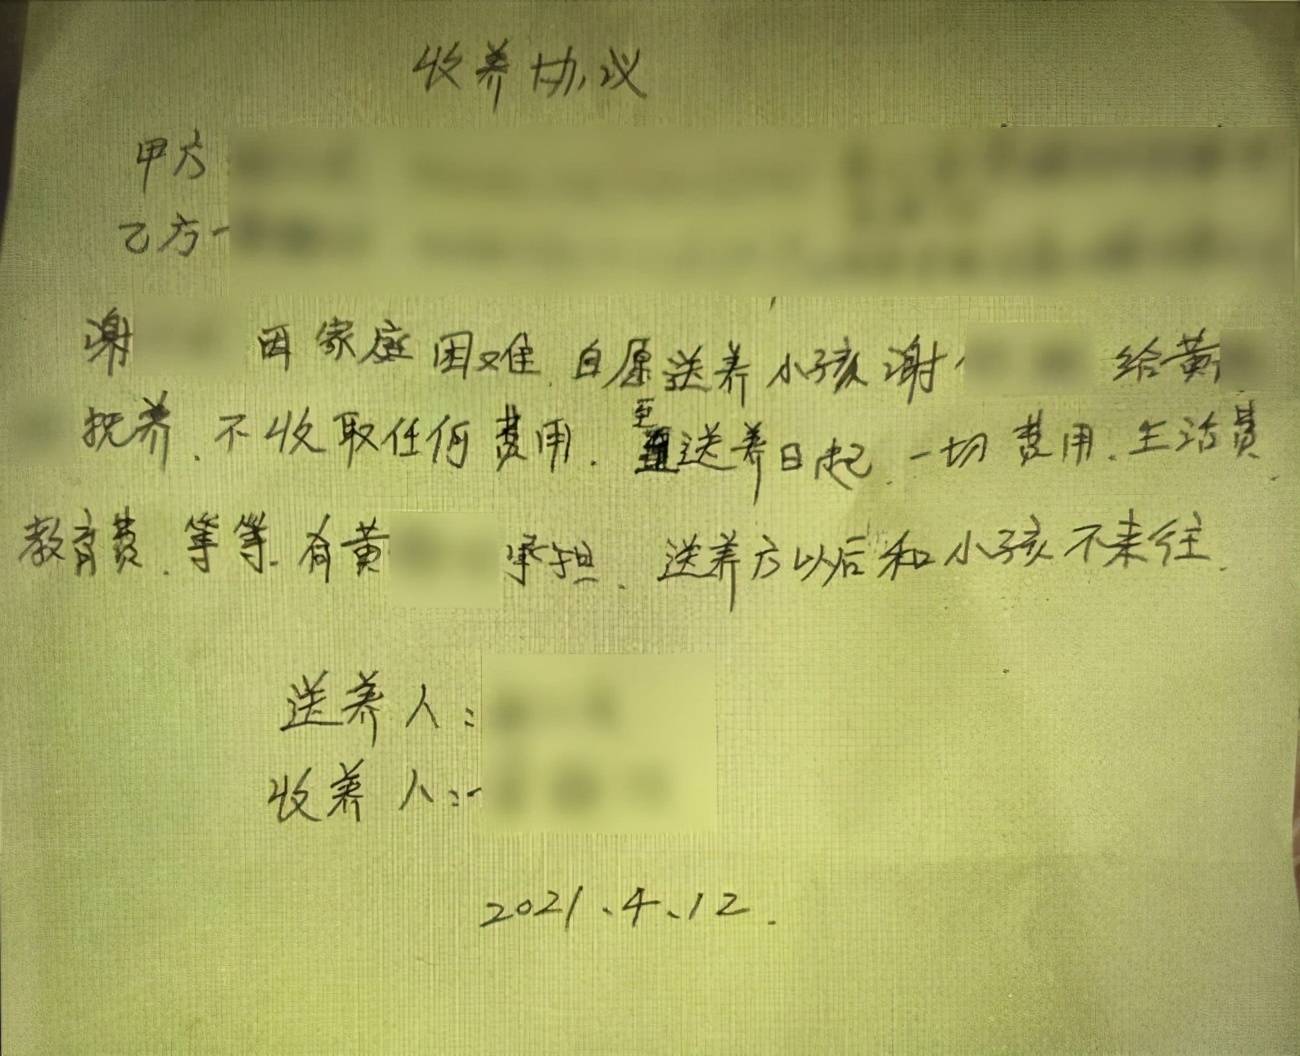 收养协议
甲方
乙方
谢 因家庭困难.自愿送养小孩谢 给黄
抚养.不收取任何费用.至送养日起.一切费用.生活费
教育费.等等.有黄 承担.送养方以后和小孩不来往.
送养人:
收养人:
2021.4.12.